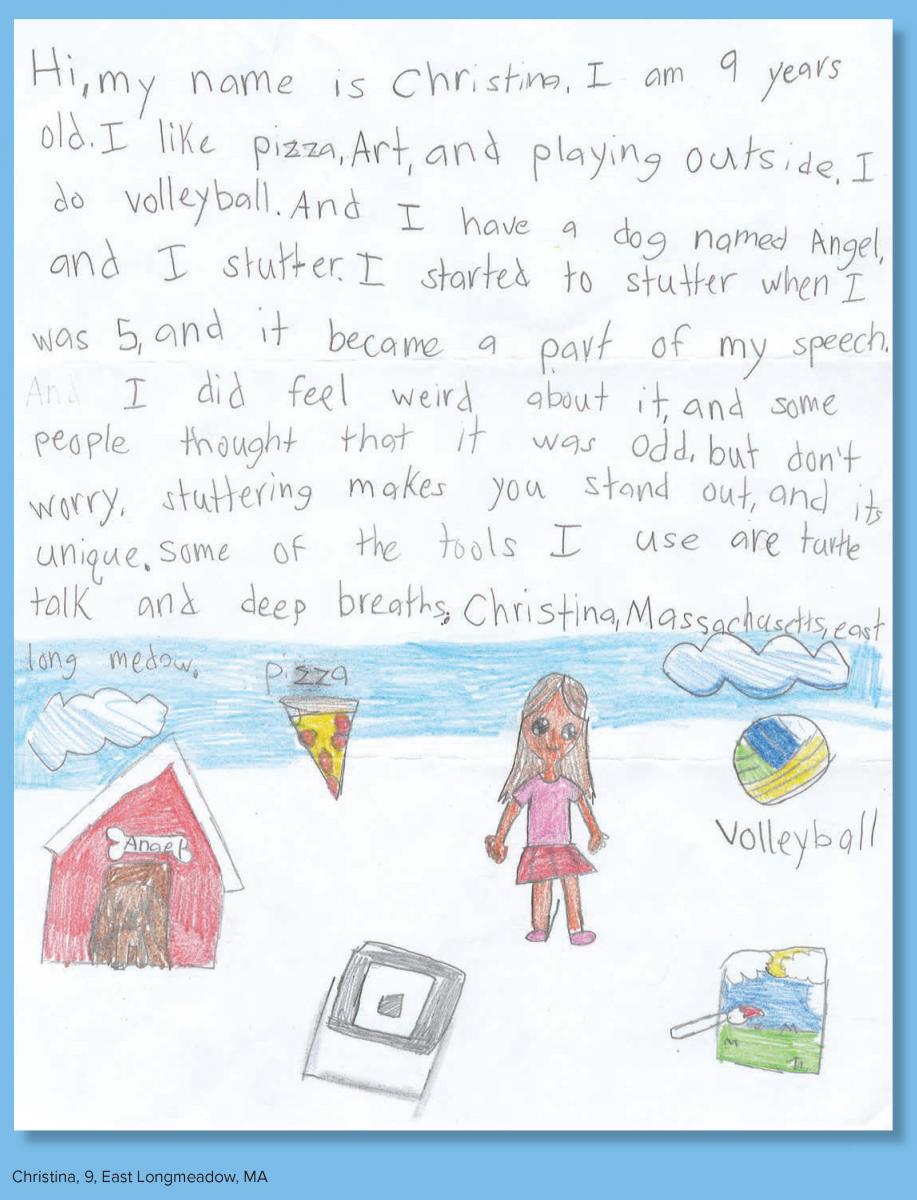 Hi, my name is Christina. I am 9 years
old. I like pizza, Art, and playing outside. I
do volleyball. And I have a dog named Angel,
and I stutter. I started to stutter when I
was 5, and it became a part of my speech.
And I did feel weird about it, and some
people thought that it was odd, but don't
worry, stuttering makes you stand out, and its
unique. some of the tools I use are turtle
talk and deep breaths. Christina, Massachusetts, east
long medow.
pizza
Angel
Volleyball
Christina, 9, East Longmeadow, MA